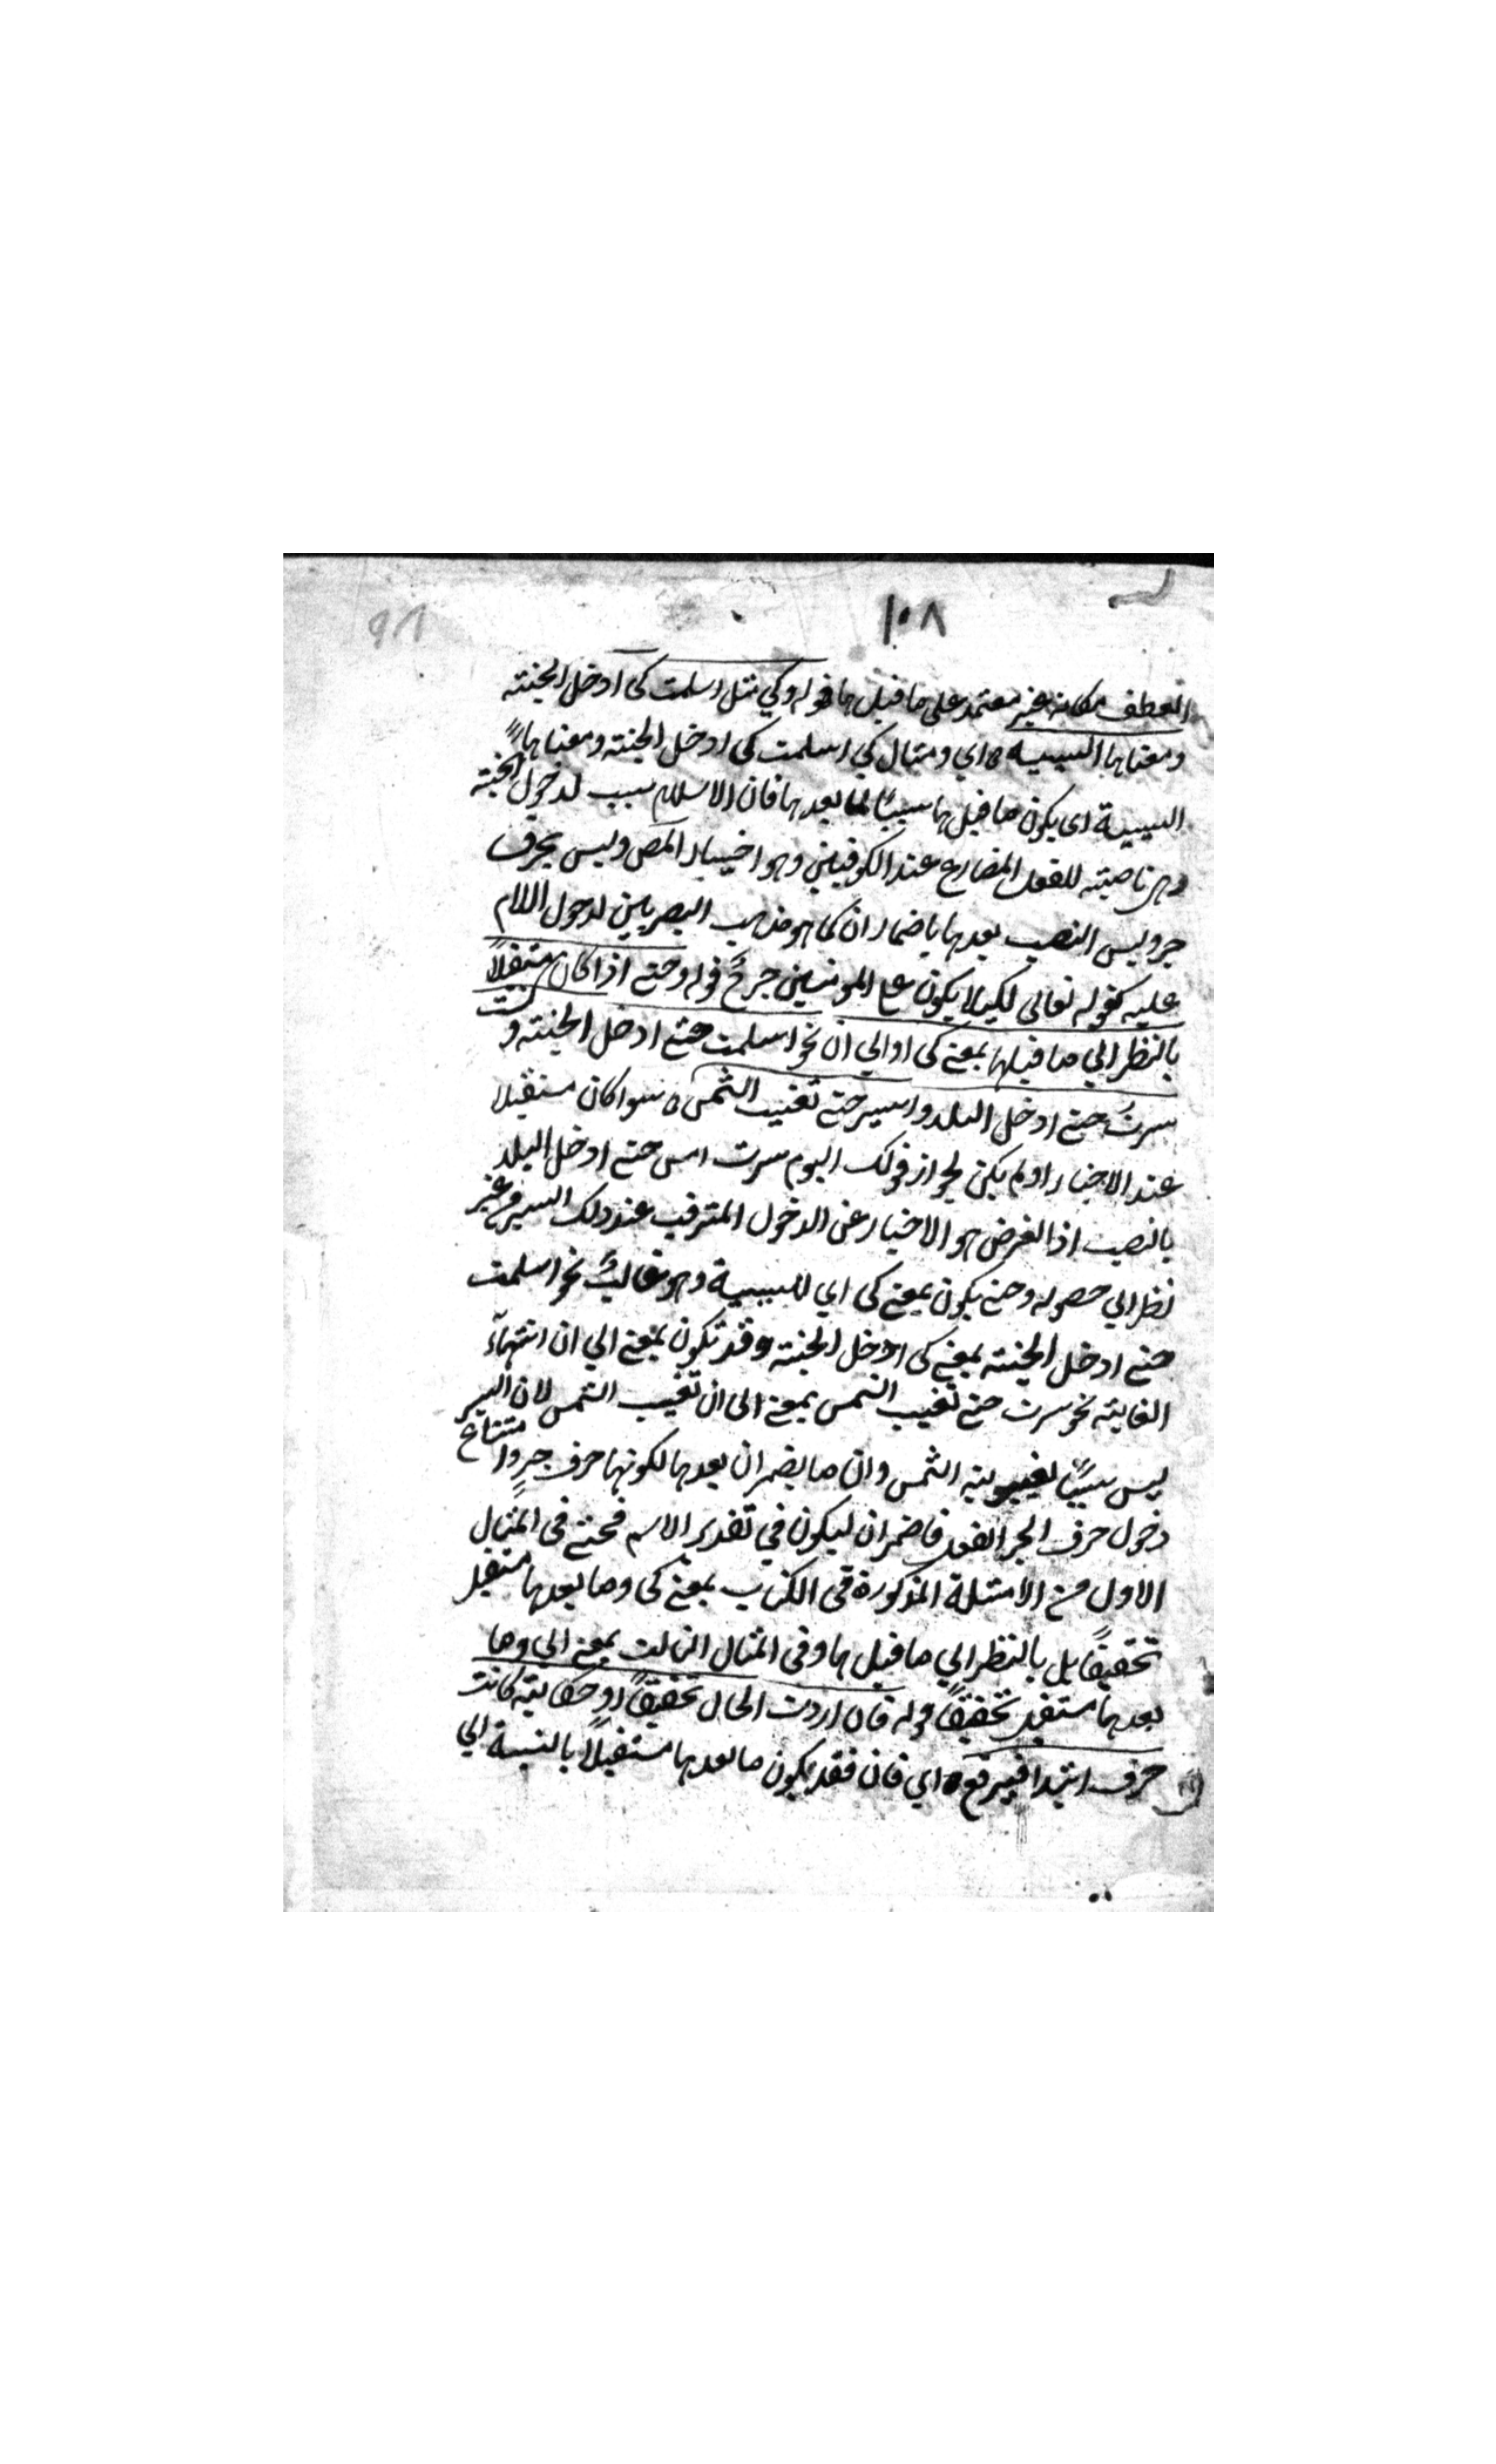 ١٠٨
٩٨
العطف مكانه غير معتمد على ما قبلها قوله وكي مثل اسلمت كى ادخل الجنته
ومعناها السببيه ه اي ومثال كي اسلمت كى ادخل الجنته ومعناها
السببية اى يكون ما قبلها سببًا لما بعدها فان الاسلام سبب لدخول الجنته
وهى ناصبته للفعل المضارع عند الكوفيين وهو اختيار المص وليس بحرف
جر وليس النصب بعدها باضمار ان كما هو مذهب البصريين لدخول اللام
عليه كقوله تعالى لكيلا يكون على المومنين حرج قوله وحتى اذا كان مستقبلًا
بالنظر الي ما قبلها بمعنى كى او الي ان نحو اسلمت حتى ادخل الجنته و كنت
سرتُ حتى ادخل البلد واسير حتى تغيب الشمس ه سوا كان مستقبلا
عند الاخبار او لم يكن لجواز قولك اليوم سرت امس حتى ادخل البلد
بالنصب اذ الغرض هو الاخبار عن الدخول المترقب عند ذلك السير من غير
نظر الي حصوله وحتى يكون بمعنى كى اي للسببية وهو غالبٌ نحو اسلمت
حتى ادخل الجنته بمعنى كى ادخل الجنته وقد تكون بمعنى الي ان انتهآء
الغايته نحو سرت حتى تغيب الشمس بمعنى الى ان تغيب الشمس لان السير
ليس سببًا لغيبوبته الشمس وان ما يضمر ان بعدها لكونها حرف جرٍ وامتناع
دخول حرف الجر الفعل فاضمر ان ليكون في تقدير الاسم فحتى فى المثال
الاول من الامثلة المذكورة فى الكتاب بمعنى كى وما بعدها مستقبل
تحقيقًا بل بالنظر الي ما قبلها وفى المثال الثالث بمعنى الي وما
بعدها مستقبل تحقيقًا قوله فان اردت الحال تحقيقًا او حكايته كانت
حرف ابتدا فيرفع ه اي فان فقد يكون ما بعدها مستقبلًا بالنسبة الي